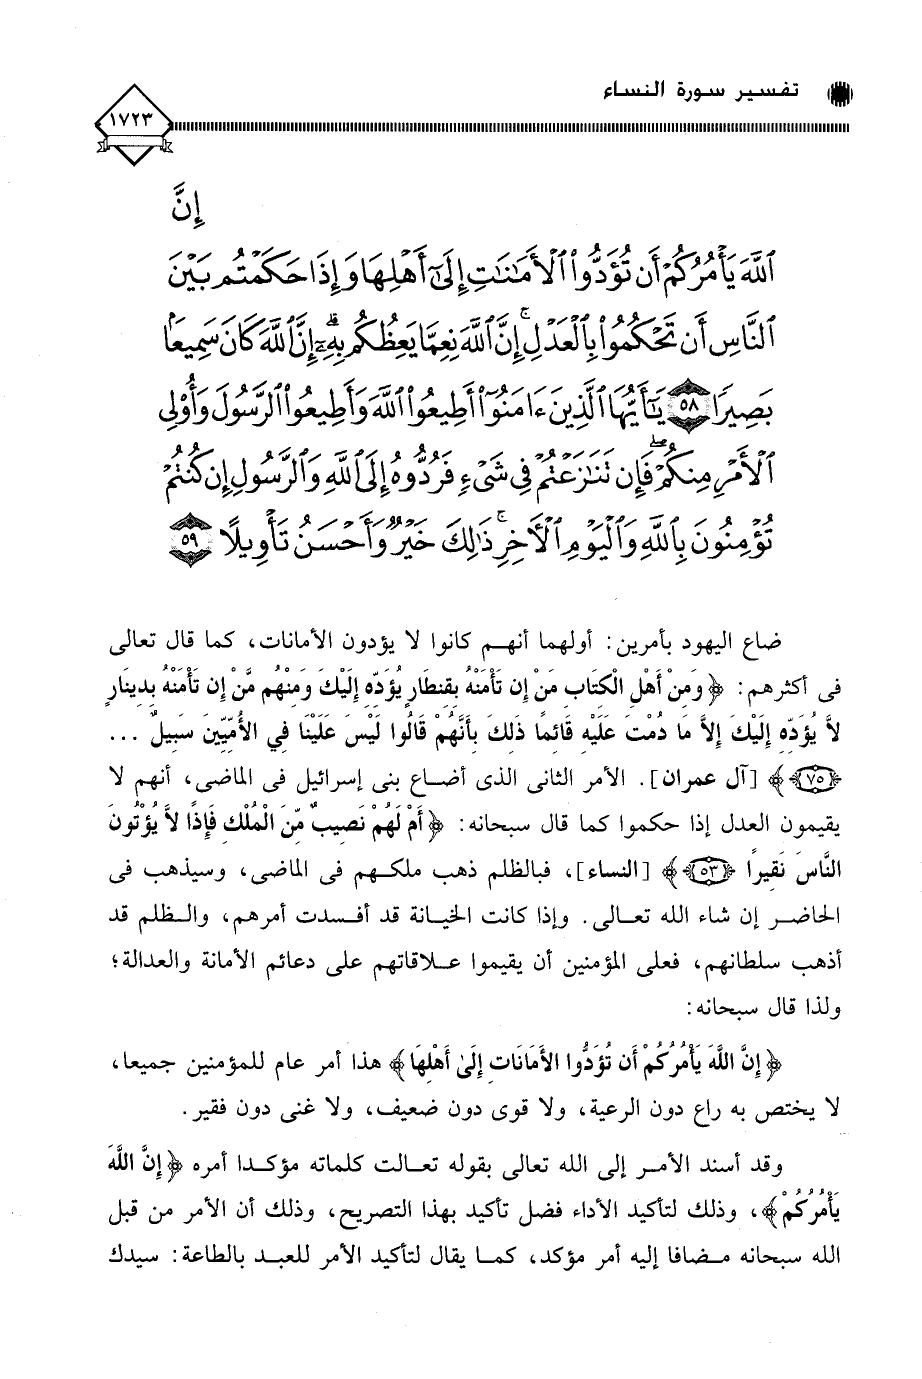 تفسير سورة النساء
١٧٢٣
إِنَّ
ٱللَّهَ يَأْمُرُكُمْ أَن تُؤَدُّوا۟ ٱلْأَمَـٰنَـٰتِ إِلَىٰٓ أَهْلِهَا وَإِذَا حَكَمْتُم بَيْنَ
ٱلنَّاسِ أَن تَحْكُمُوا۟ بِٱلْعَدْلِ ۚ إِنَّ ٱللَّهَ نِعِمَّا يَعِظُكُم بِهِۦٓ ۗ إِنَّ ٱللَّهَ كَانَ سَمِيعًۢا
بَصِيرًا ٥٨ يَـٰٓأَيُّهَا ٱلَّذِينَ ءَامَنُوٓا۟ أَطِيعُوا۟ ٱللَّهَ وَأَطِيعُوا۟ ٱلرَّسُولَ وَأُو۟لِى
ٱلْأَمْرِ مِنكُمْ ۖ فَإِن تَنَـٰزَعْتُمْ فِى شَىْءٍ فَرُدُّوهُ إِلَى ٱللَّهِ وَٱلرَّسُولِ إِن كُنتُمْ
تُؤْمِنُونَ بِٱللَّهِ وَٱلْيَوْمِ ٱلْـَٔاخِرِ ۚ ذَٰلِكَ خَيْرٌ وَأَحْسَنُ تَأْوِيلًا ٥٩
ضاع اليهود بأمرين: أولهما أنهم كانوا لا يؤدون الأمانات، كما قال تعالى
فى أكثرهم: ﴿وَمِنْ أَهْلِ الْكِتَابِ مَنْ إِن تَأْمَنْهُ بِقِنطَارٍ يُؤَدِّهِ إِلَيْكَ وَمِنْهُم مَّنْ إِن تَأْمَنْهُ بِدِينَارٍ
لاَّ يُؤَدِّهِ إِلَيْكَ إِلاَّ مَا دُمْتَ عَلَيْهِ قَائِمًا ذَلِكَ بِأَنَّهُمْ قَالُوا لَيْسَ عَلَيْنَا فِي الأُمِّيِّينَ سَبِيلٌ ...
(٧٥)﴾ [آل عمران]. الأمر الثانى الذى أضاع بنى إسرائيل فى الماضى، أنهم لا
يقيمون العدل إذا حكموا كما قال سبحانه: ﴿أَمْ لَهُمْ نَصِيبٌ مِّنَ الْمُلْكِ فَإِذًا لاَّ يُؤْتُونَ
النَّاسَ نَقِيرًا (٥٣)﴾ [النساء]، فبالظلم ذهب ملكهم فى الماضى، وسيذهب فى
الحاضر إن شاء الله تعالى. وإذا كانت الخيانة قد أفسدت أمرهم، والظلم قد
أذهب سلطانهم، فعلى المؤمنين أن يقيموا علاقاتهم على دعائم الأمانة والعدالة؛
ولذا قال سبحانه:
﴿إِنَّ اللَّهَ يَأْمُرُكُمْ أَن تُؤَدُّوا الأَمَانَاتِ إِلَىٰ أَهْلِهَا﴾ هذا أمر عام للمؤمنين جميعا،
لا يختص به راع دون الرعية، ولا قوى دون ضعيف، ولا غنى دون فقير.
وقد أسند الأمر إلى الله تعالى بقوله تعالت كلماته مؤكدا أمره ﴿إِنَّ اللَّهَ
يَأْمُرُكُمْ﴾، وذلك لتأكيد الأداء فضل تأكيد بهذا التصريح، وذلك أن الأمر من قبل
الله سبحانه مضافا إليه أمر مؤكد، كما يقال لتأكيد الأمر للعبد بالطاعة: سيدك